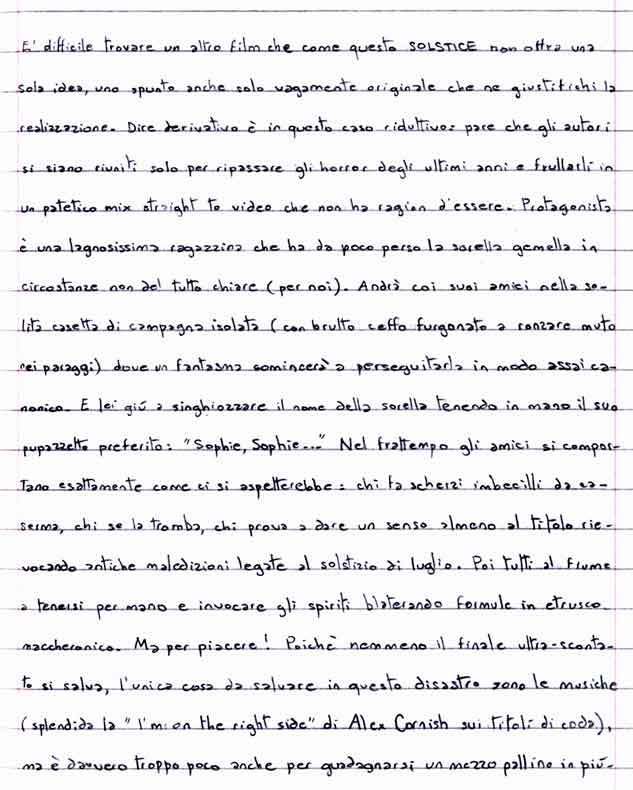 E' difficile trovare un altro film che come questo SOLSTICE non offra una
sola idea, uno spunto anche solo vagamente originale che ne giustifichi la
realizzazione. Dire derivativo è in questo caso riduttivo: pare che gli autori
si siano riuniti solo per ripassare gli horror degli ultimi anni e frullarli in
un patetico mix straight to video che non ha ragion d'essere. Protagonista
è una lagnosissima ragazzina che ha da poco perso la sorella gemella in
circostanze non del tutto chiare (per noi). Andrà coi suoi amici nella so-
lita casetta di campagna isolata (con brutto ceffo furgonato a ronzare muto
nei paraggi) dove un fantasma comincerà a perseguitarla in modo assai ca-
nonico. E lei giú a singhiozzare il nome della sorella tenendo in mano il suo
pupazzetto preferito: "Sophie, Sophie..." Nel frattempo gli amici si compor-
tano esattamente come ci si aspetterebbe: chi fa scherzi imbecilli da ca-
serma, chi se la tromba, chi prova a dare un senso almeno al titolo rie-
vocando antiche maledizioni legate al solstizio di luglio. Poi tutti al fiume
a tenersi per mano e invocare gli spiriti blaterando formule in etrusco
maccheronico. Ma per piacere! Poichè nemmeno il finale ultra-sconta-
to si salva, l'unica cosa da salvare in questo disastro sono le musiche
(splendida la "I'm on the right side" di Alex Cornish sui titoli di coda),
ma è davvero troppo poco anche per guadagnarsi un mezzo pallino in piú.